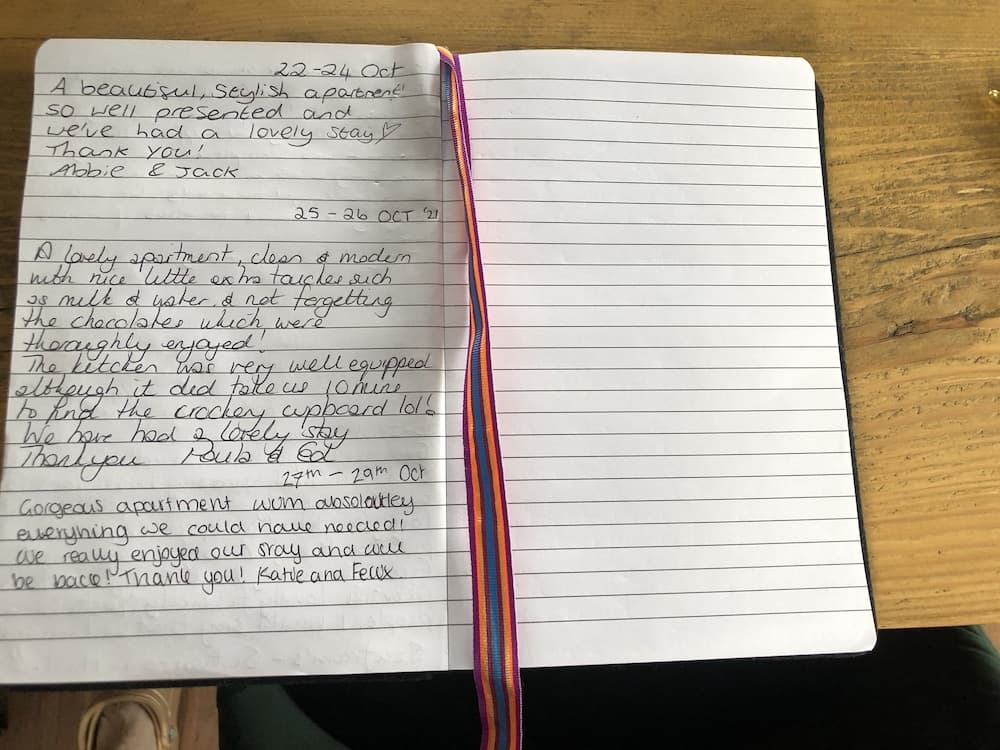 22-24 Oct
A beautiful, stylish apartment!
so well presented and
we've had a lovely stay♡
Thank you!
Abbie & Jack
25-26 OCT '21
A lovely apartment, clean & modern
with nice little extra touches such
as milk & water, & not forgetting
the chocolates which were
thoroughly enjoyed!
The kitchen was very well equipped
although it did take us 10 mins
to find the crockery cupboard lol!
We have had a lovely stay
Thankyou Paula & Ed
27th - 29th Oct
Gorgeous apartment with absoloutley
everything we could have needed!
we really enjoyed our stay and will
be back! Thank you! Katie and Felix